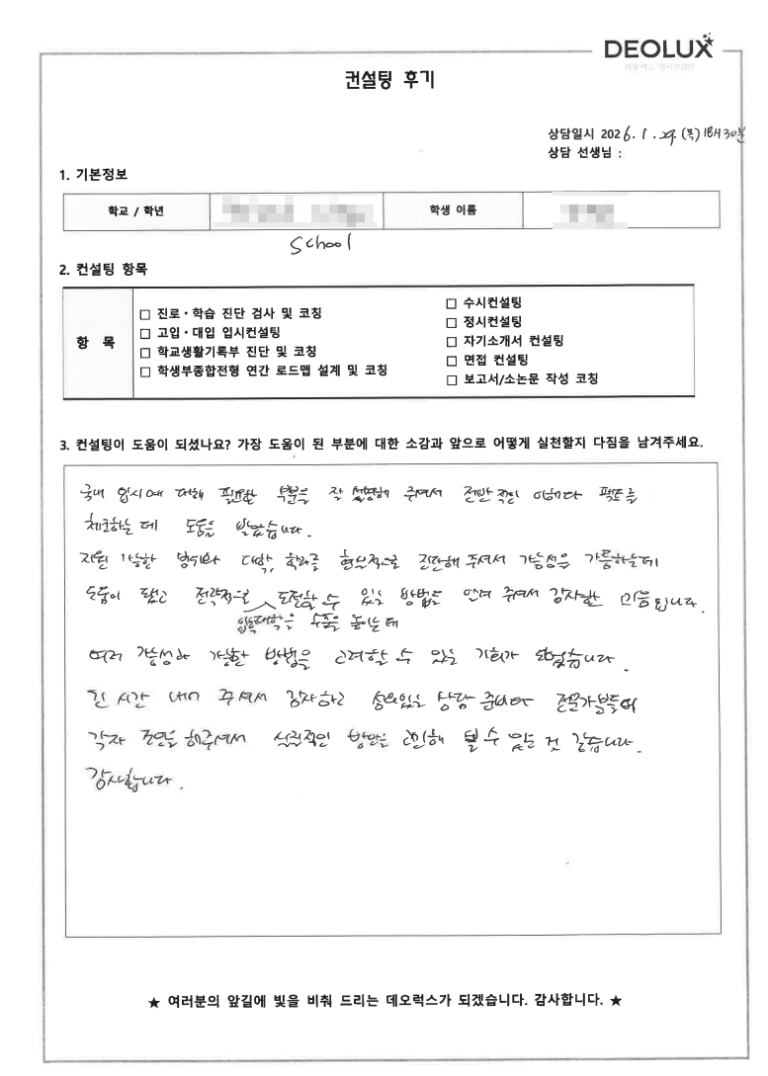 DEOLUX
컨설팅 후기
상담일시 2026. 1. 29. (목) 18시30분
상담 선생님 :
1. 기본정보
학교 / 학년
학생 이름
school
2. 컨설팅 항목
항 목
□ 진로·학습 진단 검사 및 코칭
□ 고입·대입 입시컨설팅
□ 학교생활기록부 진단 및 코칭
□ 학생부종합전형 연간 로드맵 설계 및 코칭
□ 수시컨설팅
□ 정시컨설팅
□ 자기소개서 컨설팅
□ 면접 컨설팅
□ 보고서/소논문 작성 코칭
3. 컨설팅이 도움이 되셨나요? 가장 도움이 된 부분에 대한 소감과 앞으로 어떻게 실천할지 다짐을 남겨주세요.
국내 입시에 대해 필요한 부분을 잘 설명해 주셔서 전반적인 이해와 팩트를
체크하는 데 도움을 받았습니다.
지원 가능한 범위와 대학, 학과를 현실적으로 진단해 주셔서 가능성을 가늠하는데
도움이 됐고 전략적으로 도전할 수 있는 방법도 알려 주셔서 감사한 마음입니다.
입학대학을 수준을 높이는데
여러 가능성과 가능한 방법을 고려할 수 있는 기회가 되었습니다.
긴 시간 내어 주셔서 감사하고 성의있는 상담 준비와 전문가분들이
각자 조언을 해주셔서 실질적인 방안을 고민해 볼 수 있는 것 같습니다.
감사합니다.
★ 여러분의 앞길에 빛을 비춰 드리는 데오럭스가 되겠습니다. 감사합니다. ★